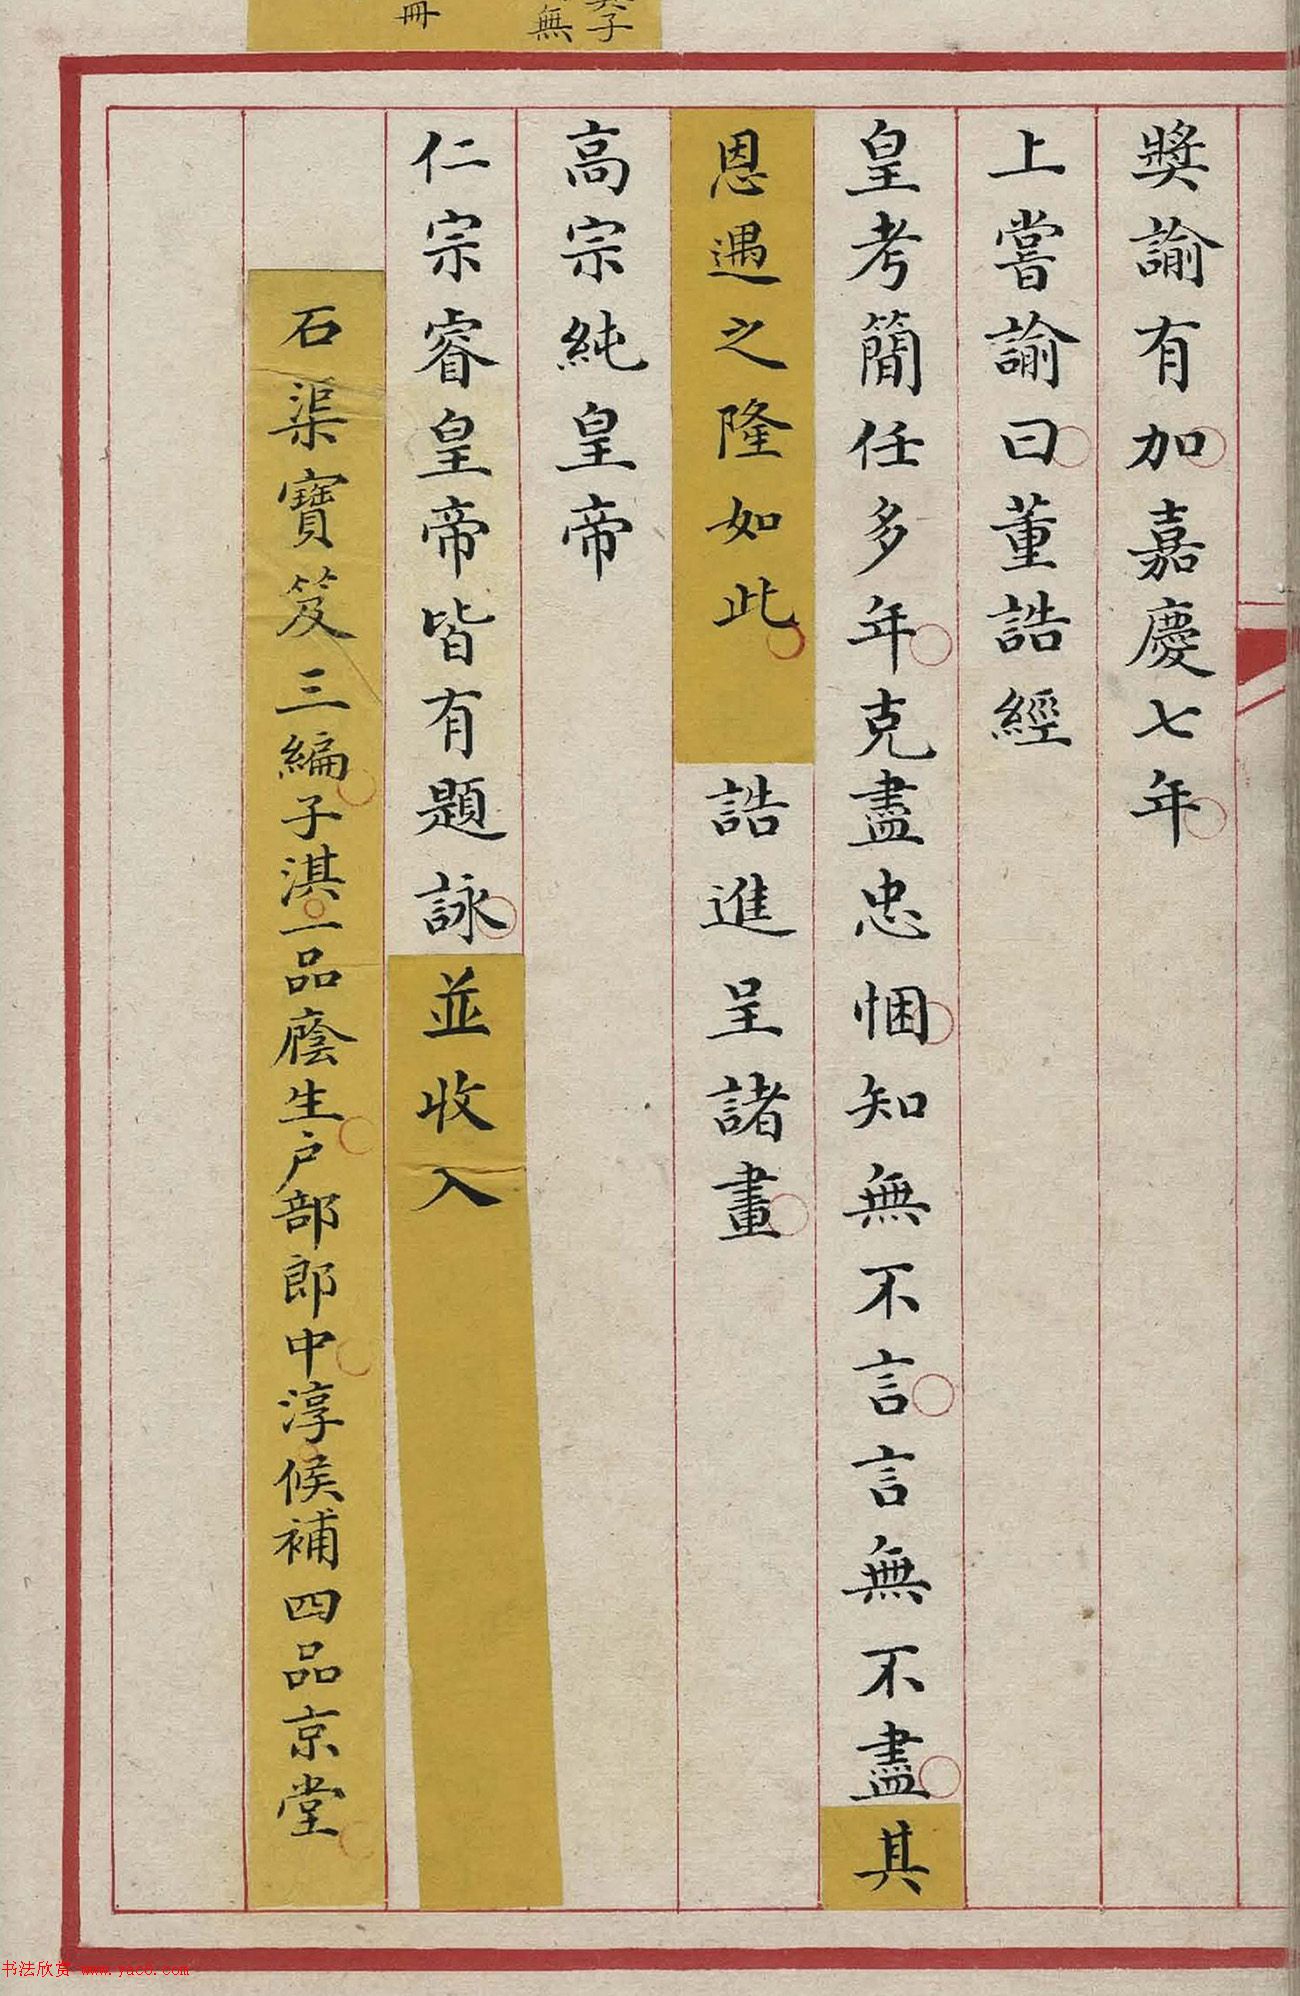 獎諭有加嘉慶七年
上嘗諭曰董誥經
皇考簡任多年克盡忠悃知無不言言無不盡其
恩遇之隆如此誥進呈諸畫
高宗純皇帝
仁宗睿皇帝皆有題詠並收入
石渠寶笈三編子淇一品廕生戶部郎中淳候補四品京堂
子
無
冊
书法欣赏 www.yac8.com